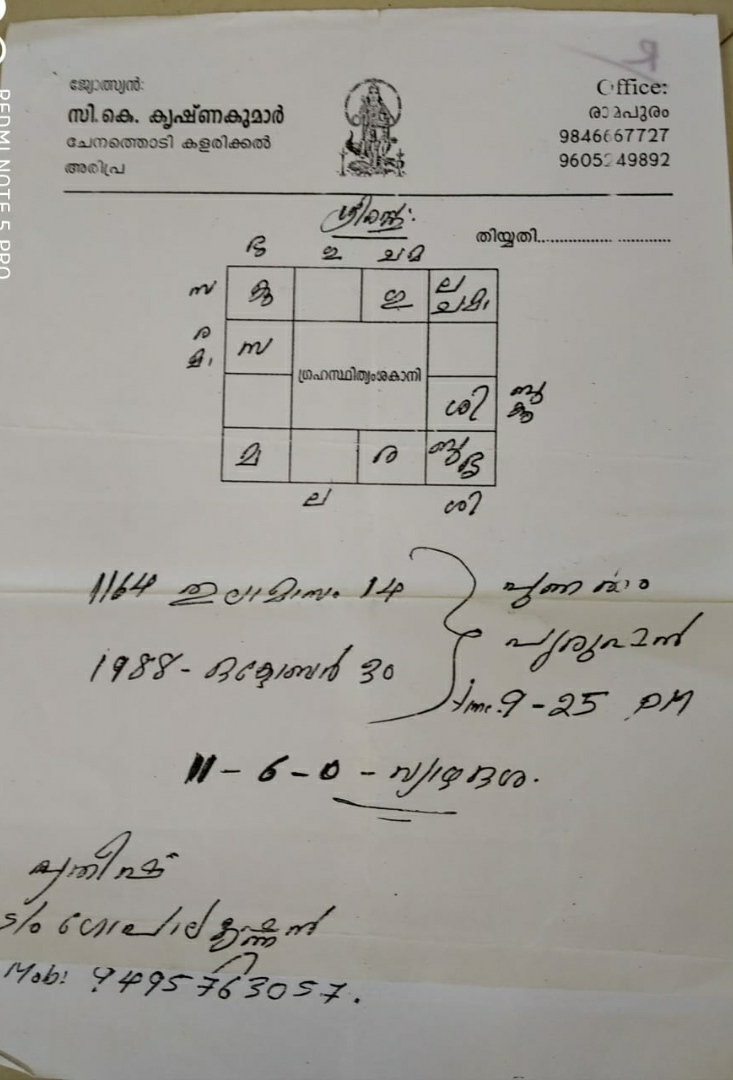 REDMI NOTE 5 PRO
ജ്യോത്സ്യൻ:
സി.കെ. കൃഷ്ണകുമാർ
ചേനത്തൊടി കളരിക്കൽ
അരിപ്ര
Office:
രാമപുരം
9846667727
9605249892
തിയ്യതി..................
ഇ ച മ
സ കു ഇ ല
ര സ
ഗ്രഹസ്ഥിത്യംശകാനി
ശി ബു കു
മ ര ബു
ല ശി
1164 തുലാമാസം 14
പുണർതം
1988 - ഒക്ടോബർ 30
പുരുഷൻ
Time: 9-25 PM
11-6-0 - വ്യാഴദശ.
S/o ഗോപാലകൃഷ്ണൻ
Mob: 9495763057.